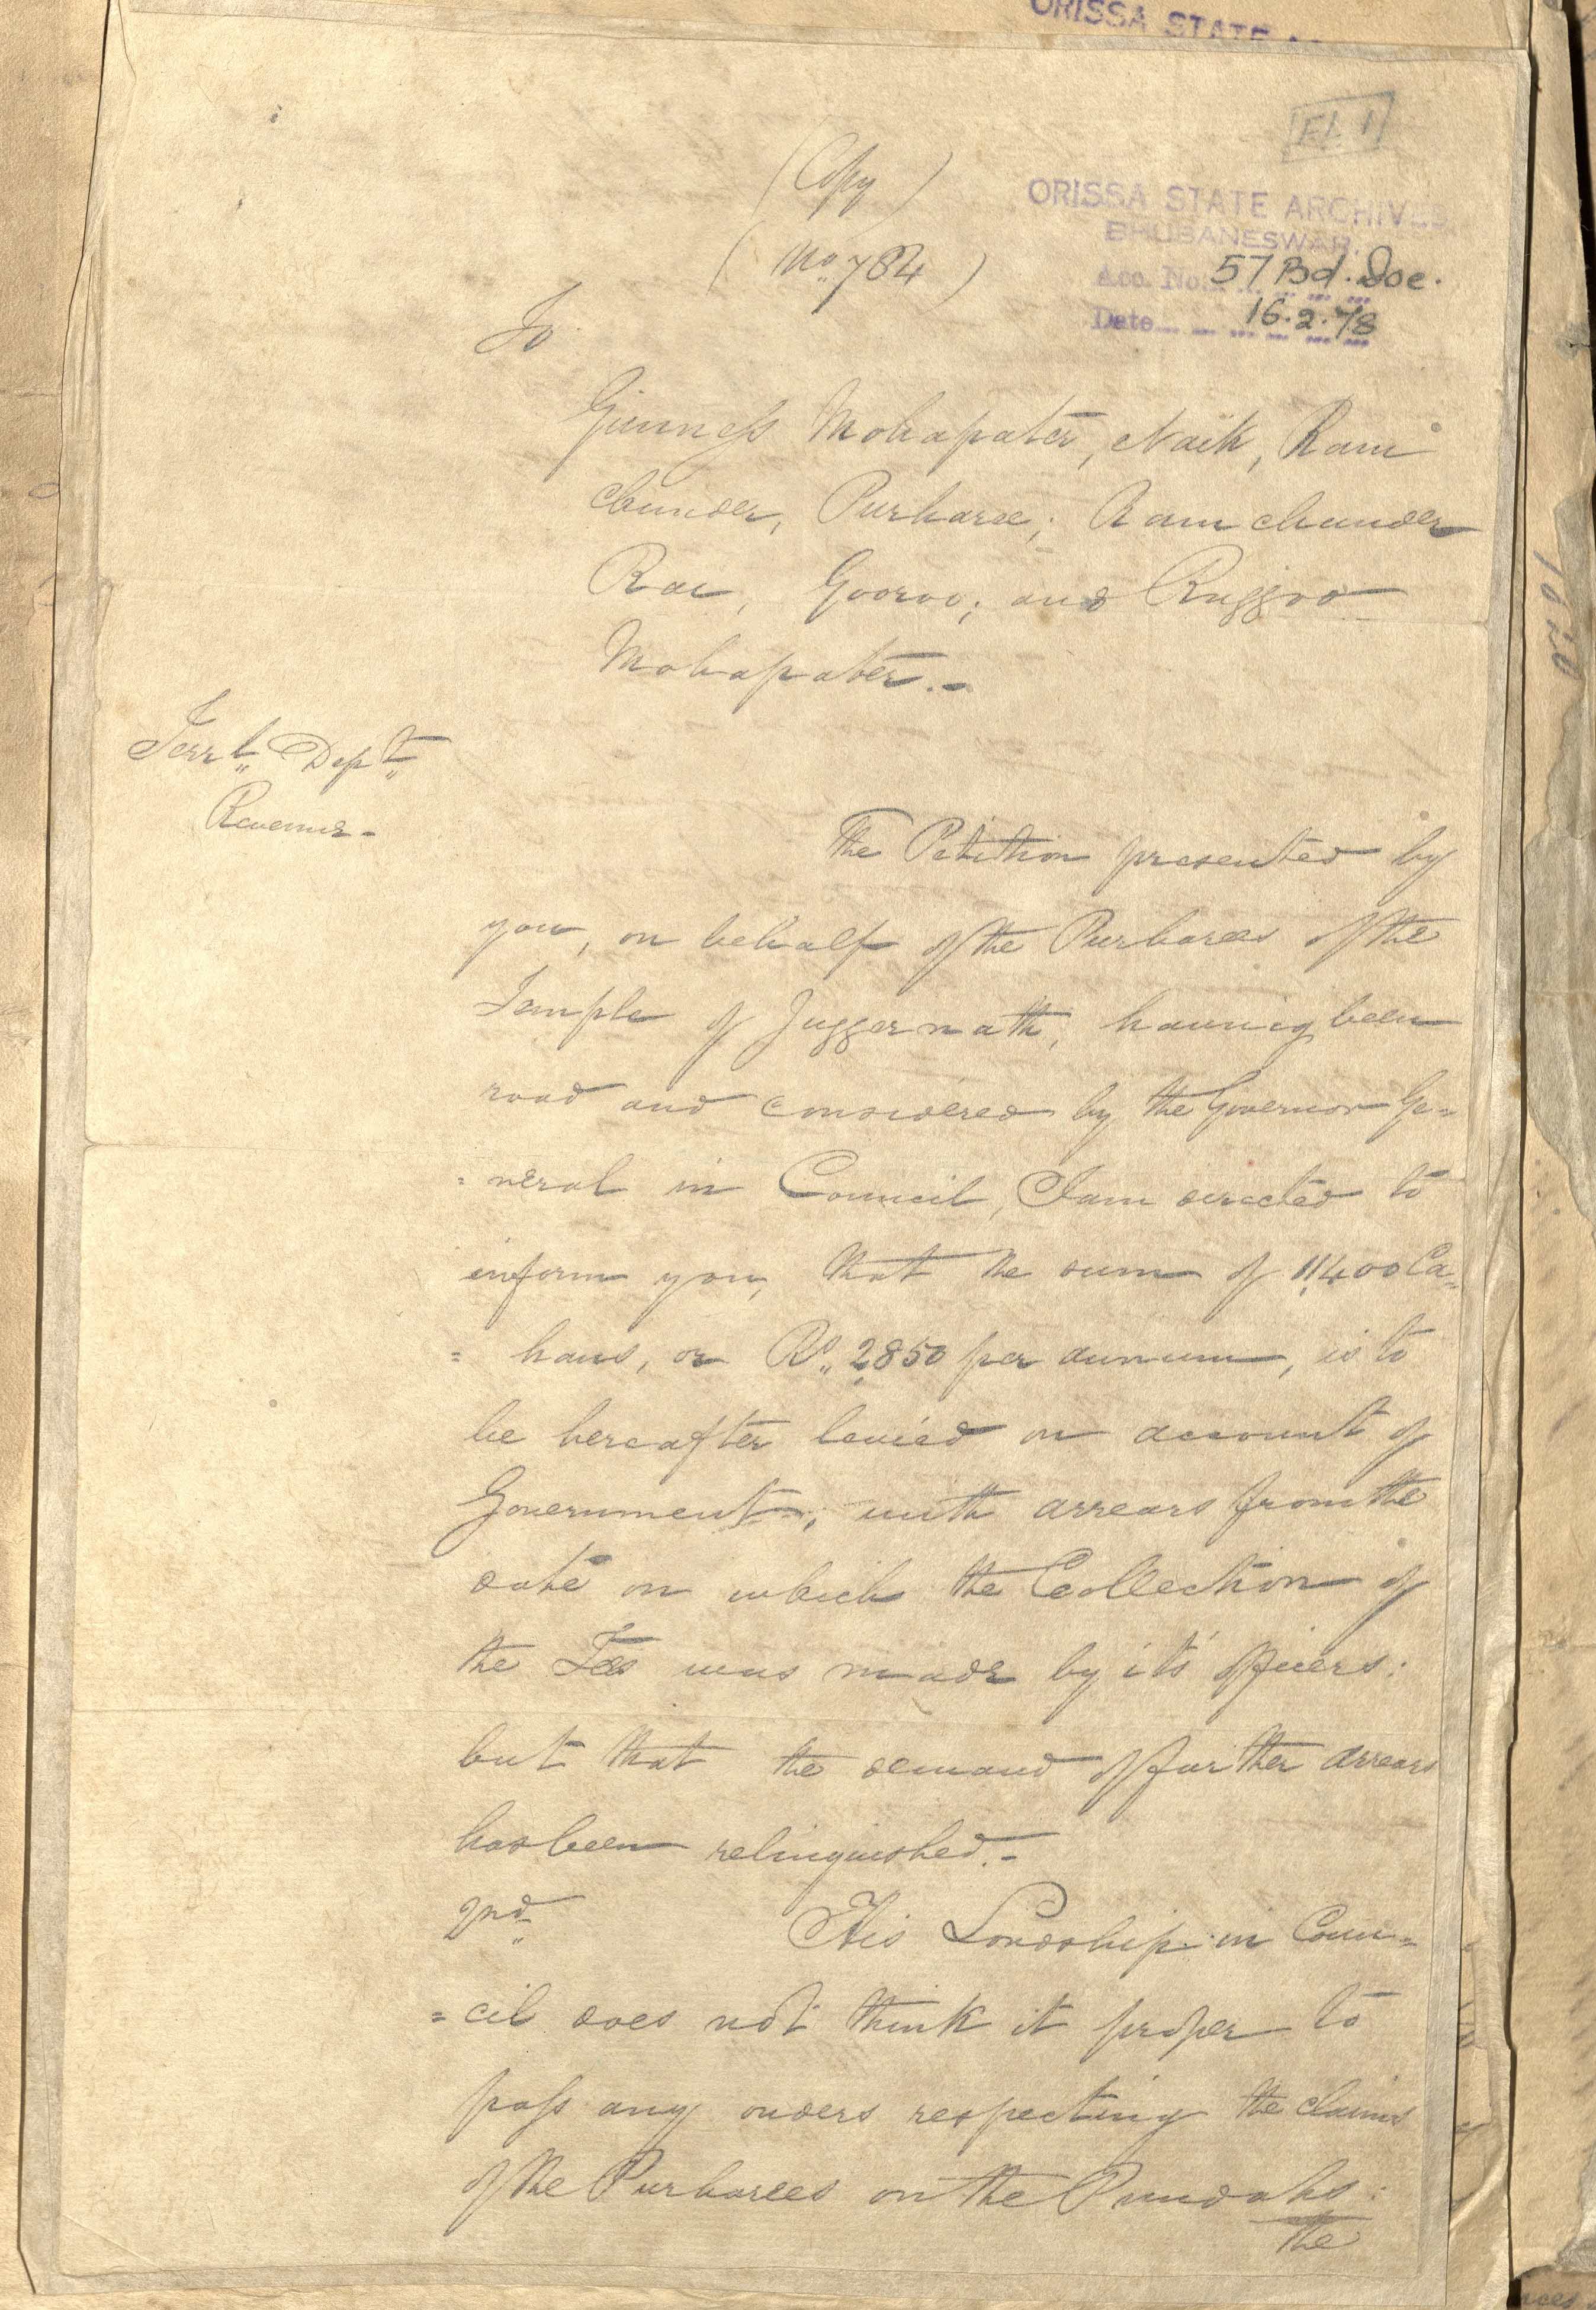 ORISSA STATE
Fl. 1
(Copy)
ORISSA STATE ARCHIVES
BHUBANESWAR.
(No 784)
Acc. No. 57 Bd. Doc.
Date 16.2.78
To
Gunness Mohapater, Naik, Ram
chunder, Purharee; Ramchunder
Rae, Gooroo; and Ruggoo
Mohapater.-
Terrl. Dept.
Revenue-
The Petition presented by
you, on behalf of the Purharees of the
Temple of Juggernath, having been
read and considered by the Governor Ge=
=neral in Council, I am directed to
inform you, that the sum of 11,400 Ca=
=hans, or Rs. 2,850 per annum, is to
be hereafter levied on account of
Government; with arrears from the
date on which the Collection of
the Fees was made by it's officers:
but that the demand of further arrears
has been relinquished.-
2nd. His Lordship in Coun=
=cil does not think it proper to
pass any orders respecting the claims
of the Purharees on the Pundahs:
the